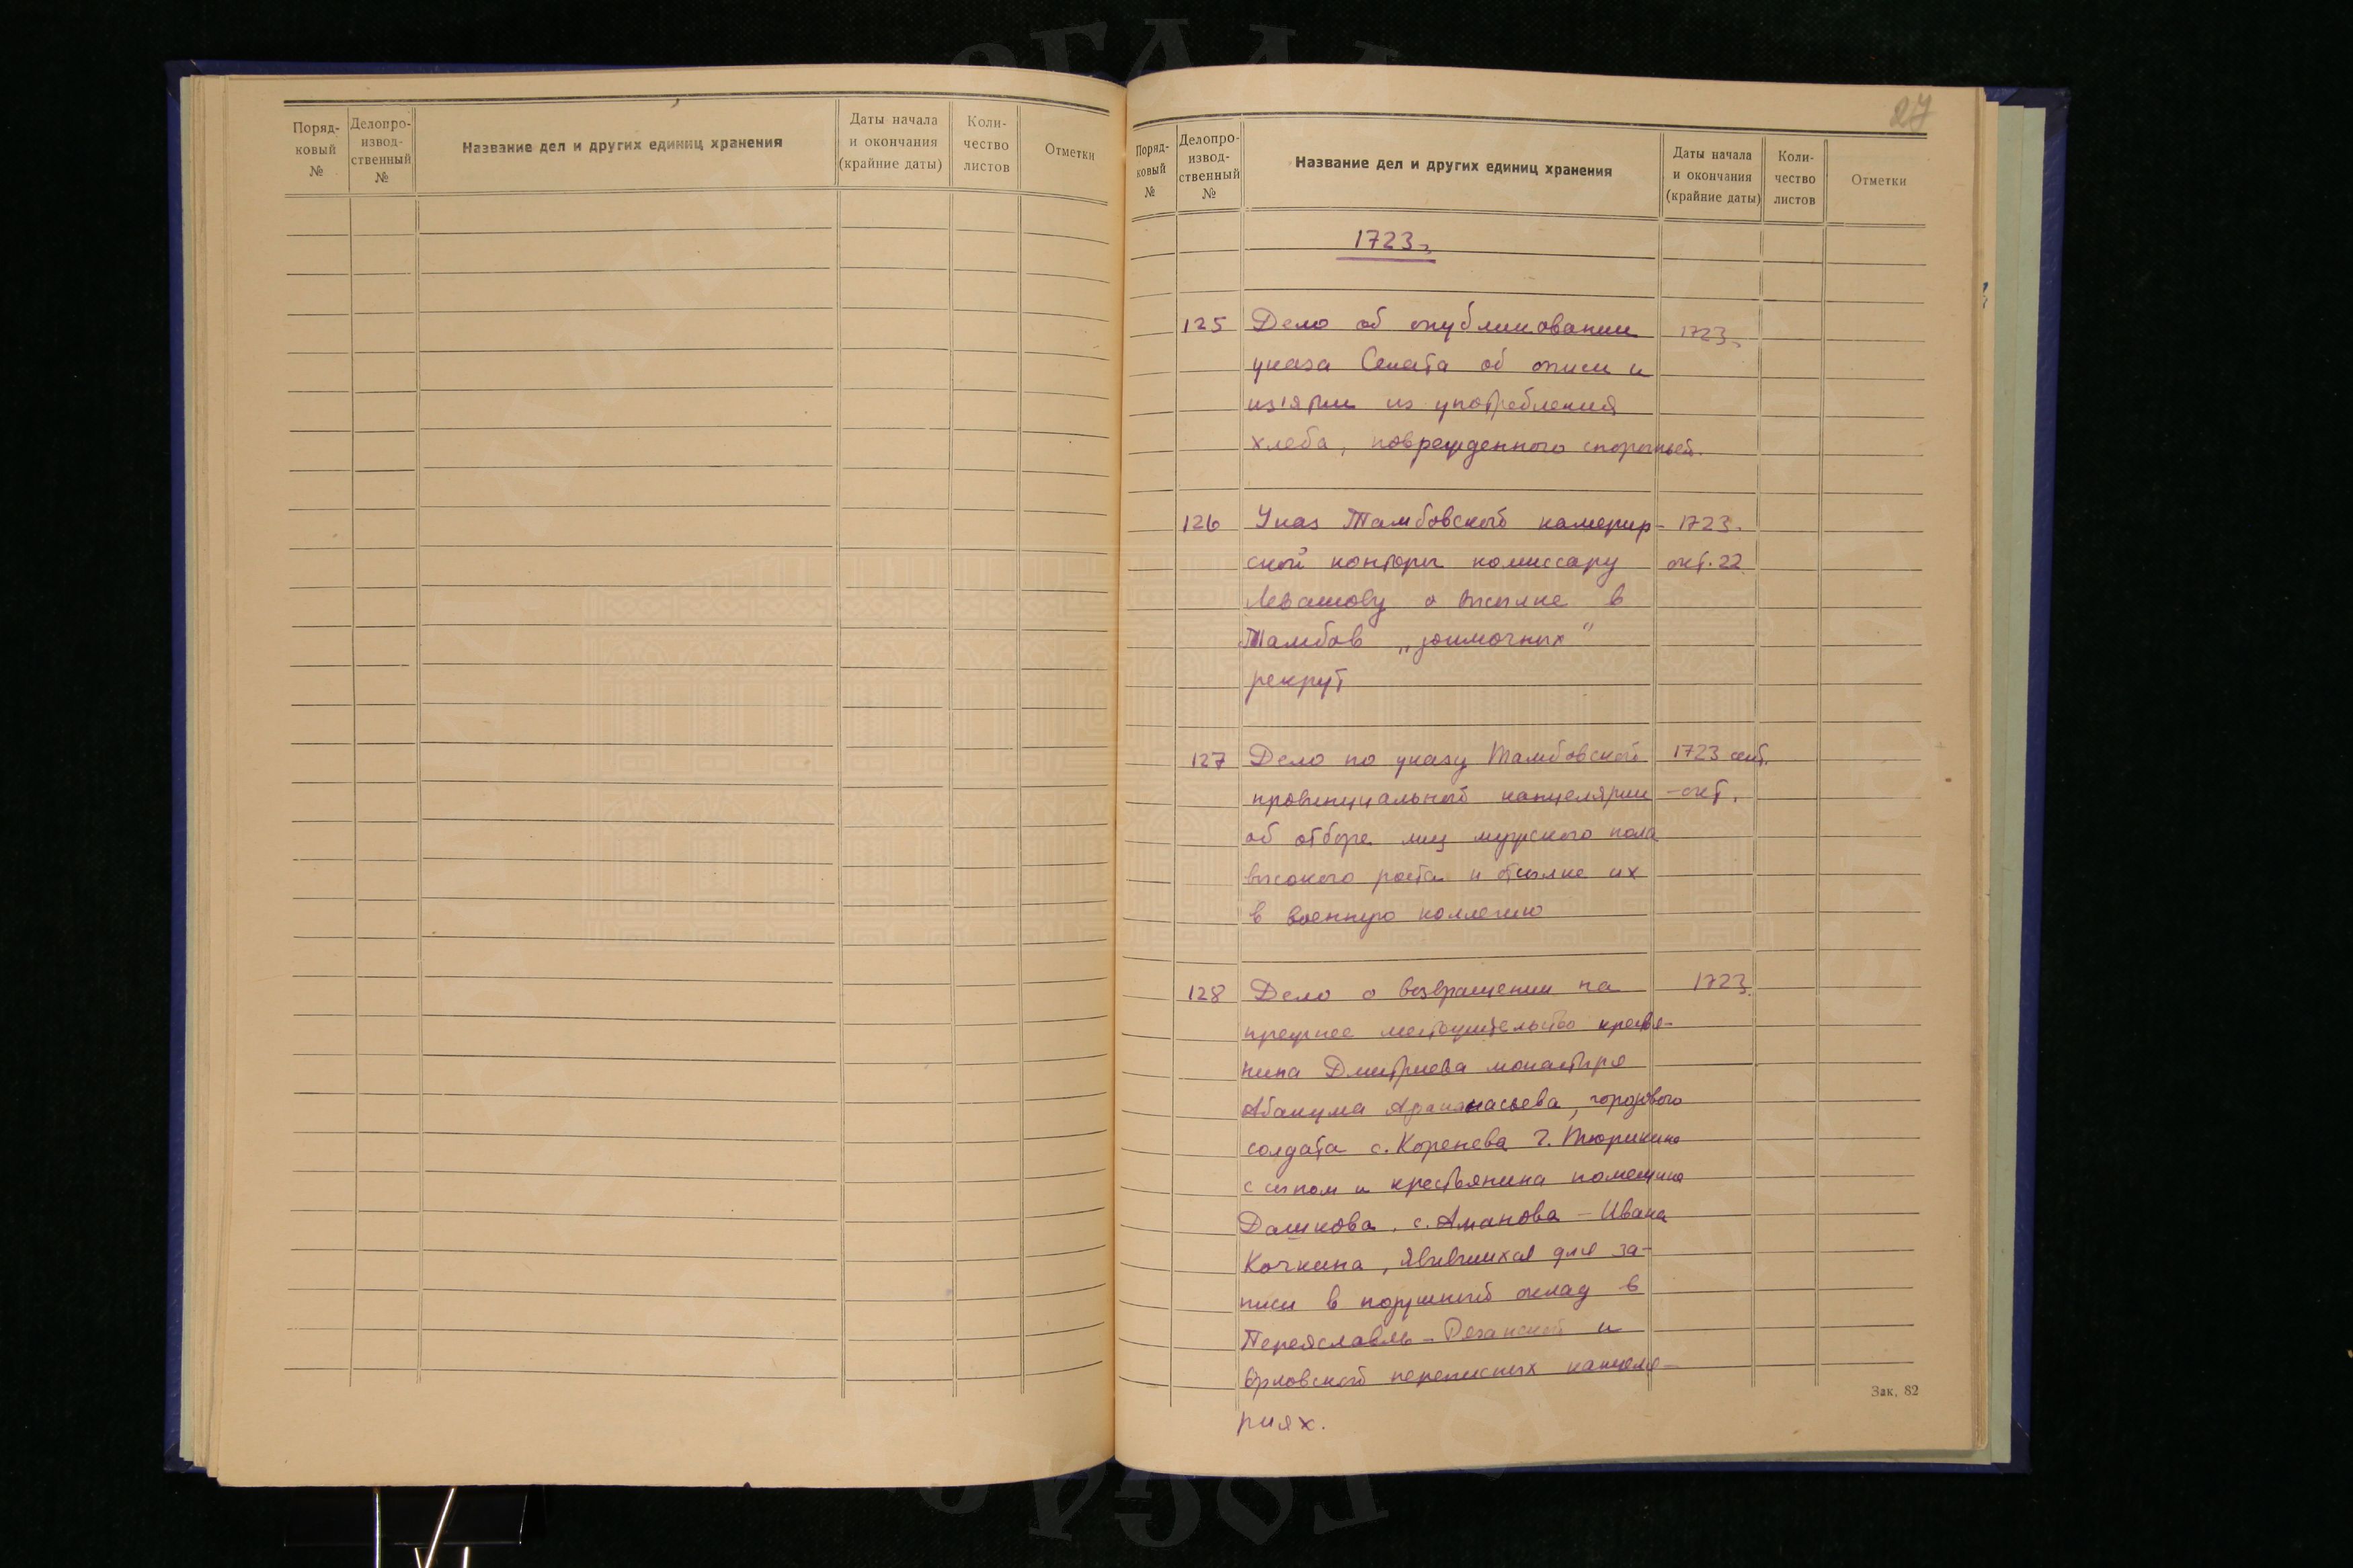 Поряд-
ковый
№
Делопро-
извод-
ственный
№
Название дел и других единиц хранения
Даты начала
и окончания
(крайние даты)
Коли-
чество
листов
Отметки
27
Поряд-
ковый
№
Делопро-
извод-
ственный
№
Название дел и других единиц хранения
Даты начала
и окончания
(крайние даты)
Коли-
чество
листов
Отметки
1723г.
125 Дело об опубликовании 1723г.
указа Сената об описи и
из'ятии из употребления
хлеба, поврежденного спорыньей.
126 Указ Тамбовской камерир- 1723.
ской конторы комиссару окт. 22
Левашову о высылке в
Тамбов „заимочных"
рекрут
127 Дело по указу Тамбовской 1723 сент.
провинциальной канцелярии -окт.
об отборе лиц мужского пола
высокого роста и отсылке их
в военную коллегию
128 Дело о возвращении на 1723.
прежнее местожительство крестья-
нина Дмитриева монастыря
Абакума, городового
солдата с. Коренева Г. Тюрикина
с сыном и крестьянина помещика
Дашкова, с. Аманова – Ивана
Кочкина, явившихся для за-
писи в подушный оклад в
Переяславль-Рязанской и
Орловской переписных канцеля-
риях.
Зак. 82